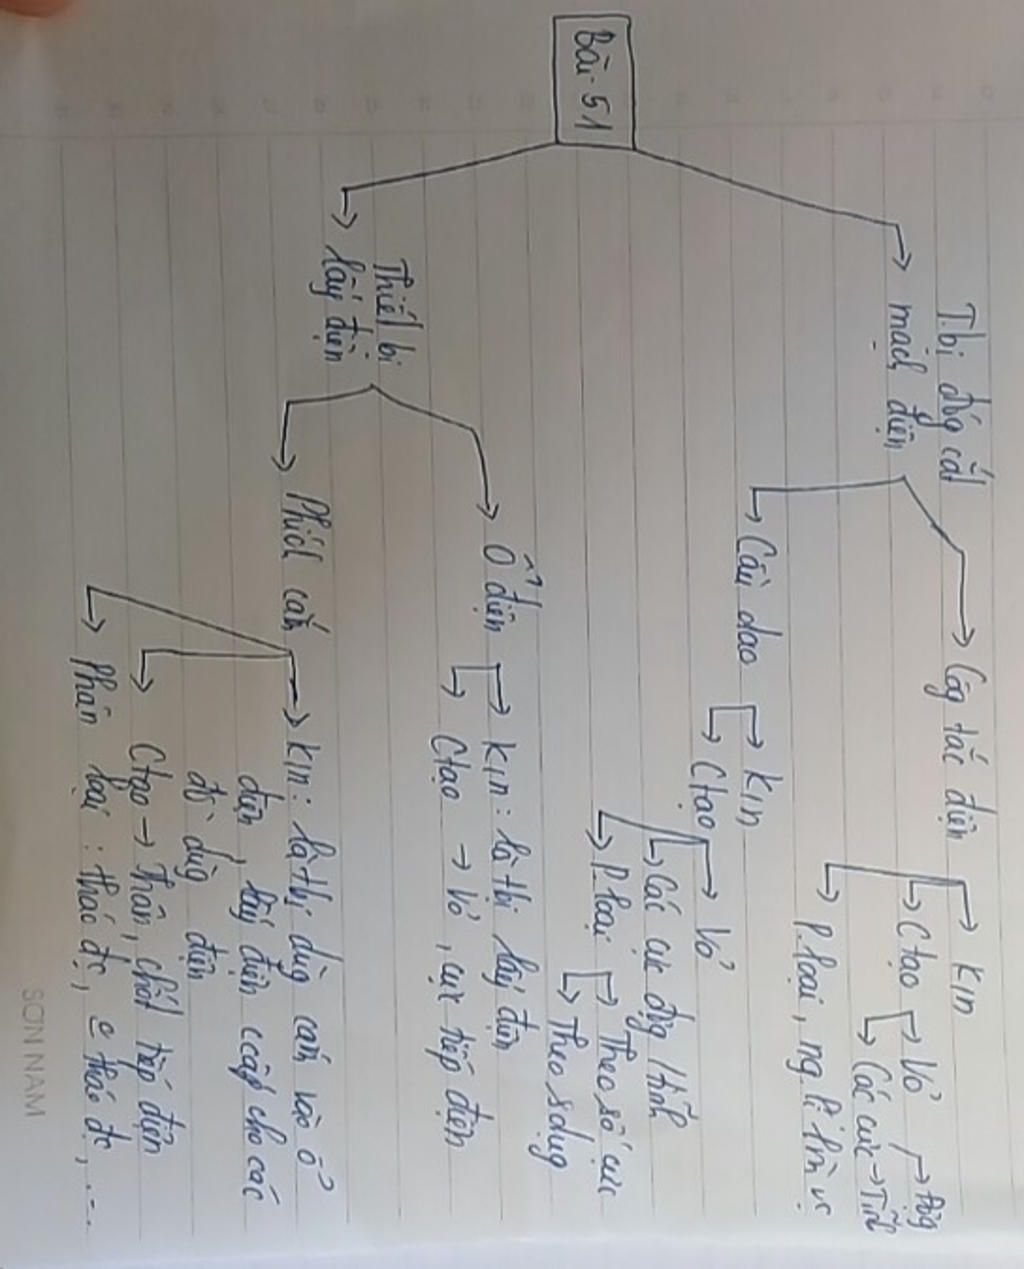 Bài 51
T.bị đóg cắt
mạch điện
Côg tắc điện
KIn
Ctạo
Vỏ
Các cực → Tĩnh
độg
P.loại, ng lí làm vc
Cầu dao
KIn
Ctạo
Vỏ
Các cực độg / tĩnh
P.loại
Theo số cực
Theo sdụg
Thiết bị
lấy điện
Ổ điện
KIn : là tbị lấy điện
Ctạo → Vỏ, cực tiếp điện
Phích cắm
KIn : là tbị dùg cắm vào ổ
điện, lấy điện ccấp cho các
đồ dùg điện
Ctạo → Thân, chốt tiếp điện
Phân loại : tháo đc, tháo đc, ...
SƠN NAM